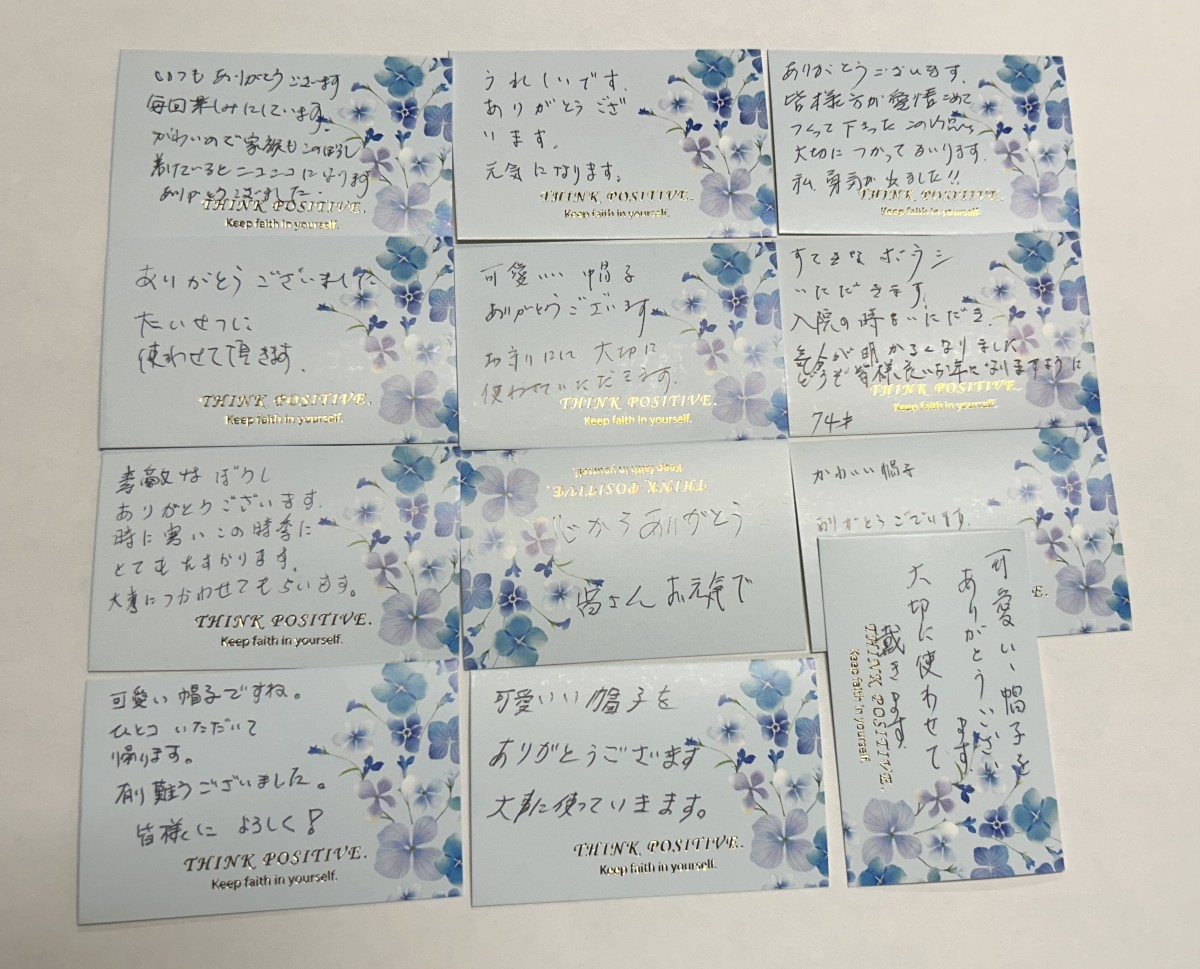 いつもありがとうございます
毎回楽しみにしています。
かわいので家族もこのぼうし
着けているとニコニコになります
ありがとうございました.
THINK POSITIVE.
Keep faith in yourself.
うれしいです.
ありがとうござ
います.
元気になります。
THINK POSITIVE.
Keep faith in yourself.
ありがとうございます.
皆様方が愛情こめて
つくって下さったこの作品
大切につかってまいります.
私、勇気が出ました!!
THINK POSITIVE.
Keep faith in yourself.
ありがとうございました
たいせつに
使わせて頂きます.
THINK POSITIVE.
Keep faith in yourself.
可愛いい帽子
ありがとうございます
お守りにし大切に
使わせていただきます.
THINK POSITIVE.
Keep faith in yourself.
すてきなボウシ
いただきます.
入院の時もいただき.
気分が明かるくなりました
どうぞ皆様良いお年になりますように
THINK POSITIVE.
Keep faith in yourself.
74才
素敵なぼうし
ありがとうございます.
時に寒いこの時季に
とてもたすかります.
大事につかわせてもらいます。
THINK POSITIVE.
Keep faith in yourself.
THINK POSITIVE.
Keep faith in yourself.
心からありがとう
皆さんお元気で
かわいい帽子
ありがとうございます.
E.
可愛いい帽子を
ありがとうござい
ます
大切に使わせて
戴きます
THINK POSITIVE.
Keep faith in yourself.
可愛い帽子ですね。
ひとコいただいて
帰ります。
有難うございました。
皆様によろしく!
THINK POSITIVE.
Keep faith in yourself.
可愛いい帽子を
ありがとうございます
大事に使っていきます。
THINK POSITIVE.
Keep faith in yourself.